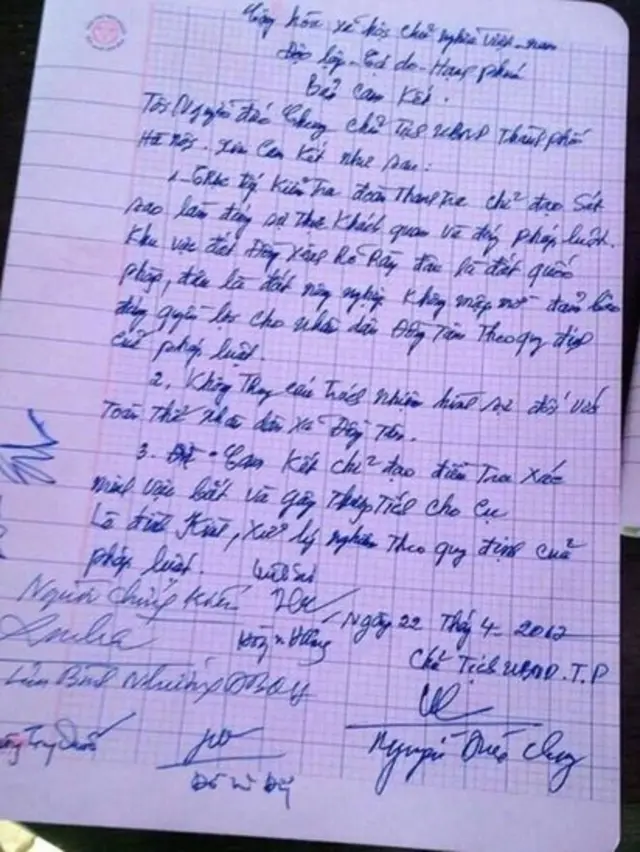 Cộng hòa xã hội chủ nghĩa Việt nam
Độc lập - Tự do - Hạnh phúc
Bản Cam Kết.
Tôi Nguyễn Đức Chung chủ tịch UBND Thành phố
Hà nội. Xin Cam Kết như sau:
1- Trực tiếp Kiểm Tra đoàn Thanh Tra chỉ đạo Sát
sao làm đúng sự thật Khách quan và đúng pháp luật.
Khu vực đất Đồng Sênh Rõ Ràng đâu là đất quốc
phòng, đâu là đất nông nghiệp Không mập mờ đảm bảo
đúng quyền lợi cho nhân dân Đồng Tâm Theo quy định
của pháp luật.
2. Không Truy cứu Trách nhiệm hình sự đối với
Toàn Thể nhân dân xã Đồng Tâm.
3. Cam Kết chỉ đạo điều Tra Xác
minh việc bắt và gây Thương Tích cho Cụ
Lê đình Kình, Xử lý nghiêm Theo quy định của
pháp luật.
Người chứng Kiến
Ngày 22 Thg 4 - 2017
Chủ Tịch UBND.T.P
Lưu Bình Nhưỡng ĐBQH
Nguyễn Đức Chung